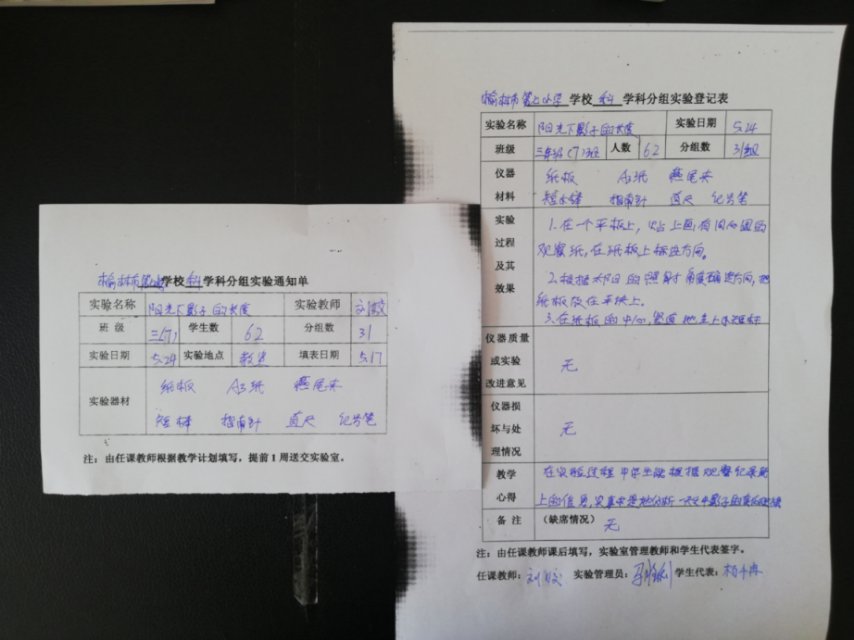 榆林市第七小学校 科 学科分组实验通知单
实验名称 阳光下影子的长度 实验教师 刘姣
班 级 三(7) 学生数 62 分组数 31
实验日期 5.24 实验地点 教室 填表日期 5.17
实验器材 纸板 A3纸 燕尾夹
短棒 指南针 直尺 记号笔
注：由任课教师根据教学计划填写，提前1周送交实验室。
榆林市第七小学 学校 科 学科分组实验登记表
实验名称 阳光下影子的长度 实验日期 5.24
班级 三年级(7)班 人数 62 分组数 31组
仪器 纸板 A3纸 燕尾夹
材料 短木棒 指南针 直尺 记号笔
实验 1.在一个平板上,
过程 观察纸,在纸板上标注方向。
及其 2.根据太阳的照射角度确定方向,把
效果 纸板放在平块上。
3.在纸板的中心,竖直地立上小短棒
仪器质量
或实验 无
改进意见
仪器损
坏与处 无
理情况
教学 在实验过程中学生能根据观察纪录纸
心得 上的信息,实事求是地分析一天中影子的
备 注 （缺席情况） 无
注：由任课教师课后填写，实验室管理教师和学生代表签字。
任课教师: 刘姣 实验管理员: 学生代表: